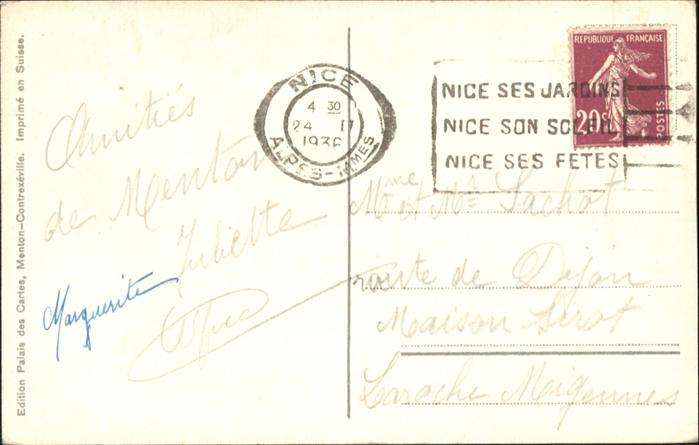 Edition Palais des Cartes, Menton-Contrexéville. Imprimé en Suisse.
Amitiés
de Menton
Juliette
Marguerite
NICE
4 30
24 II
1936
ALPES-MMES
NICE SES JARDINS
NICE SON SOLEIL
NICE SES FETES
REPUBLIQUE FRANÇAISE
20c
POSTES
Mme et Mr Sachot
route de Dijon
Maison Serot
Laroche Migennes